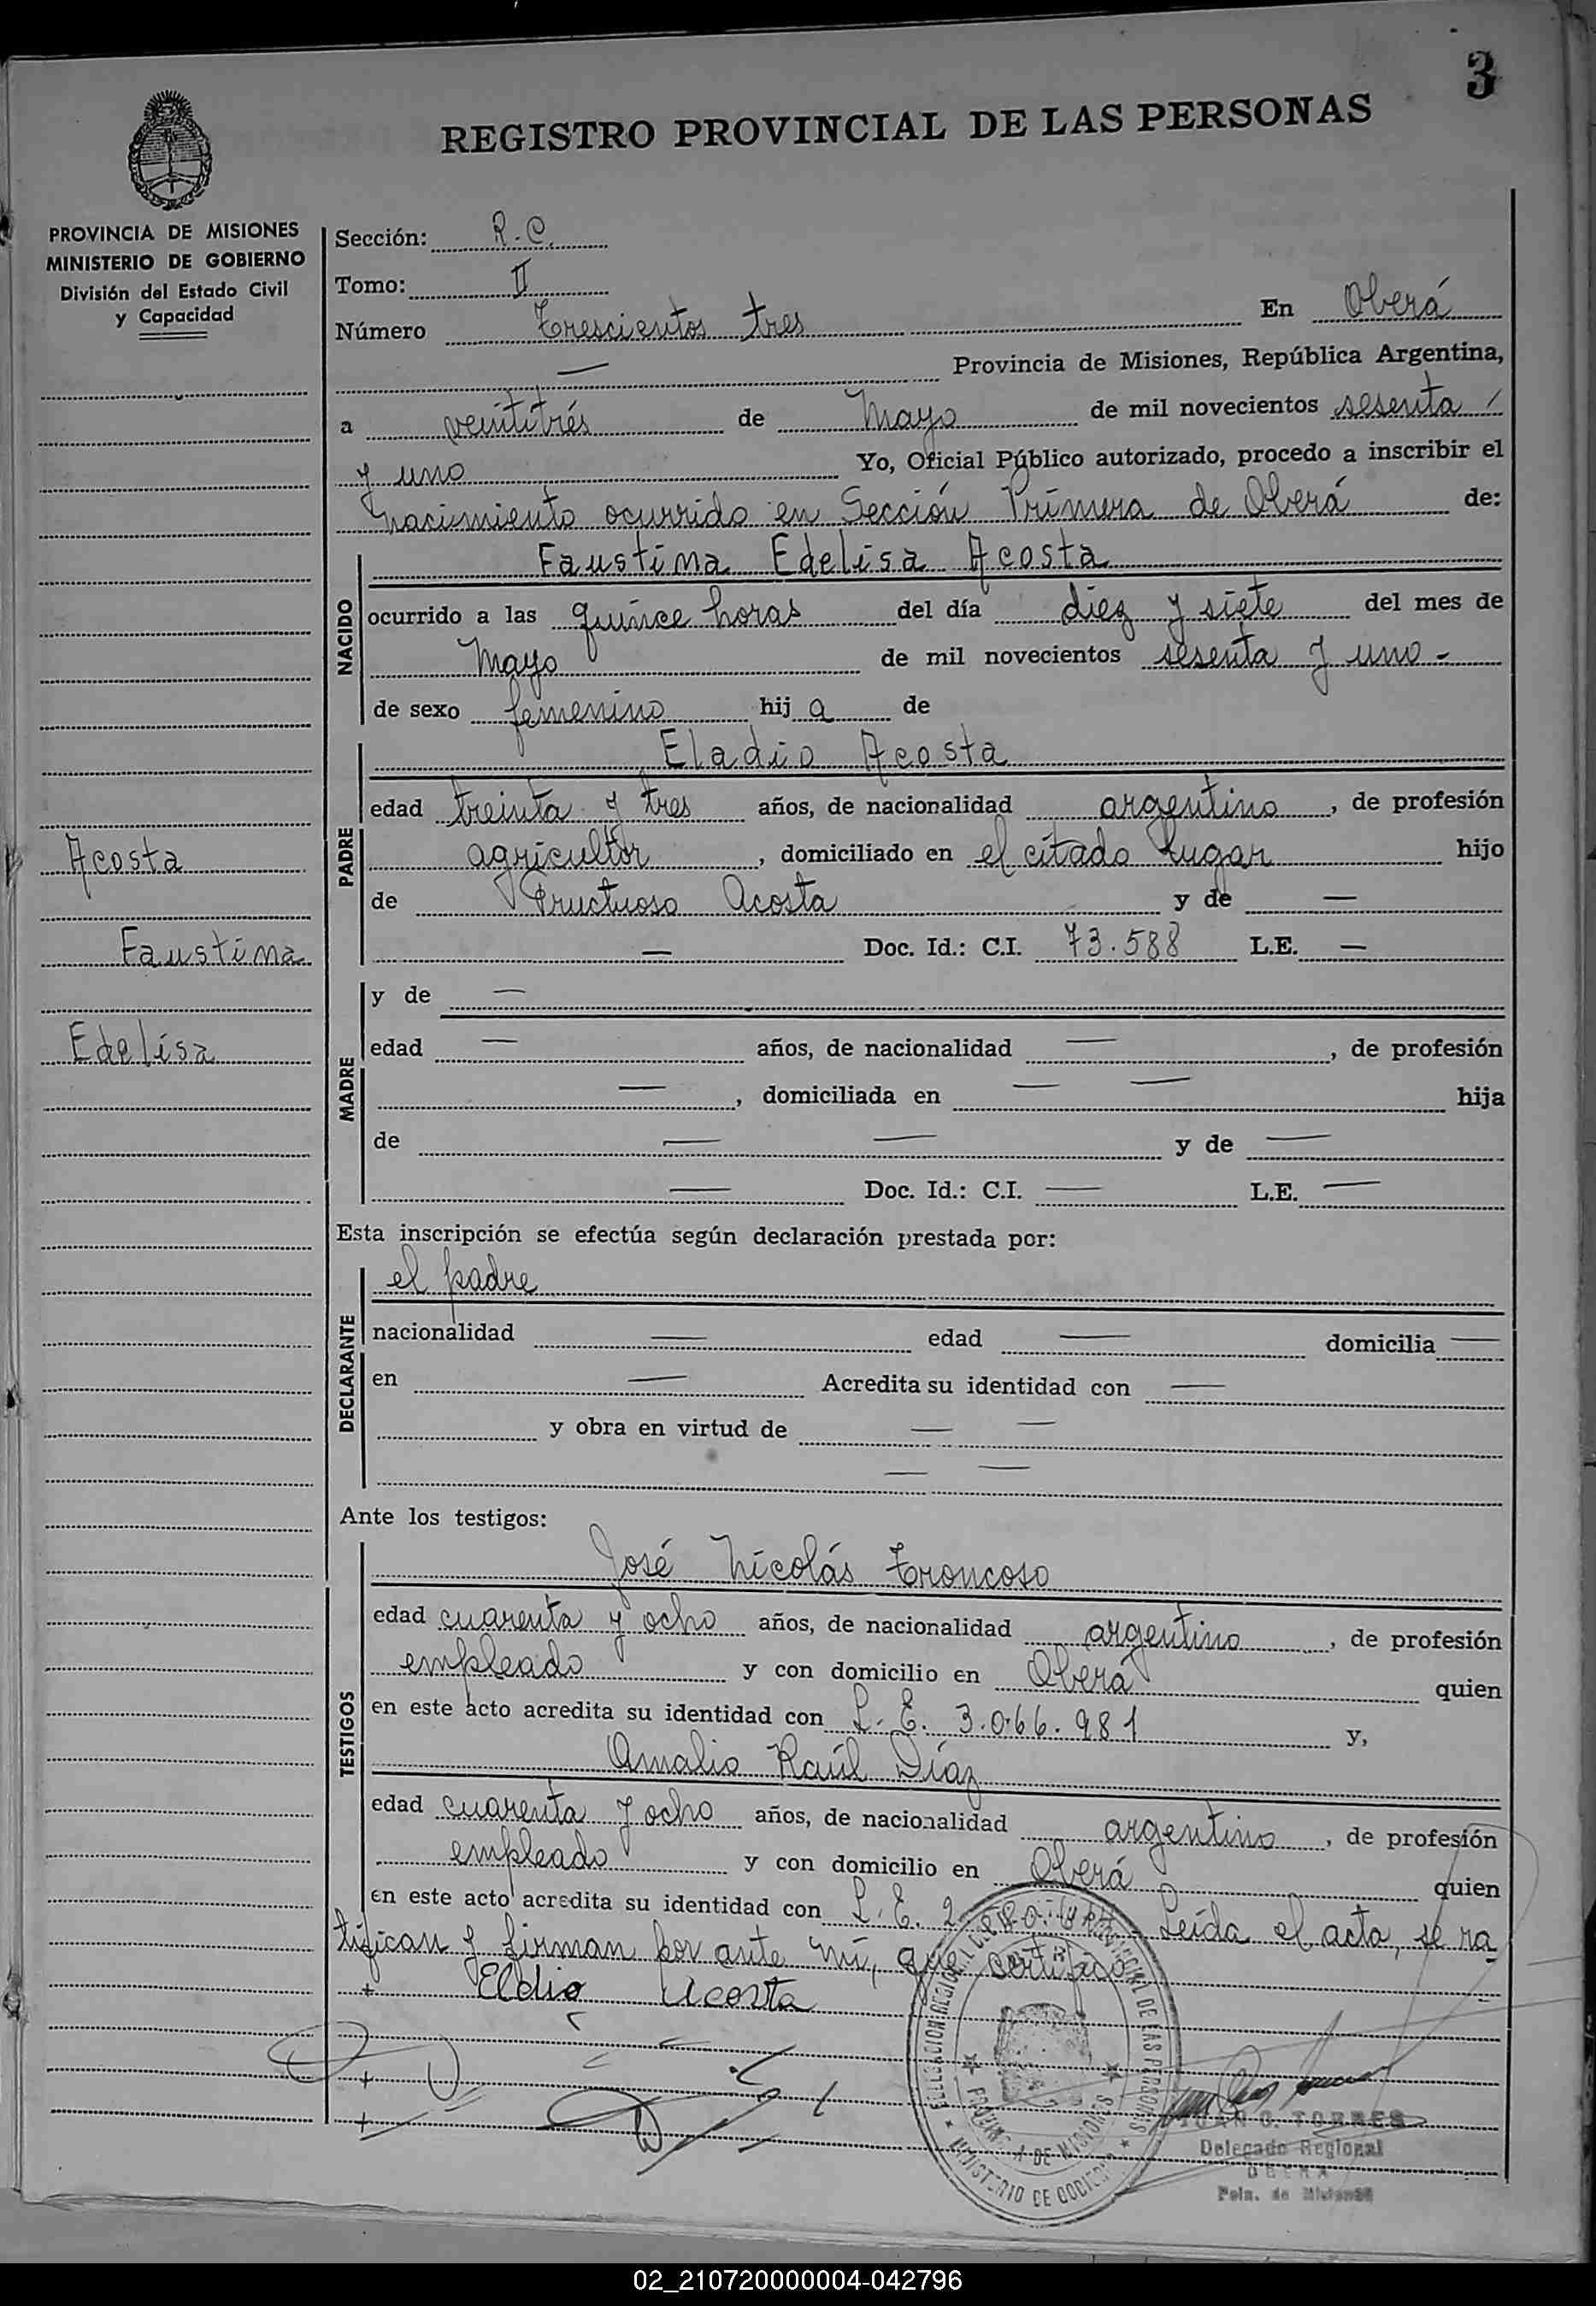 3
REGISTRO PROVINCIAL DE LAS PERSONAS
PROVINCIA DE MISIONES
MINISTERIO DE GOBIERNO
División del Estado Civil
y Capacidad
Sección: R.C.
Tomo: II
Número Trescientos tres En Oberá
— Provincia de Misiones, República Argentina,
a veintitrés de Mayo de mil novecientos sesenta /
y uno Yo, Oficial Público autorizado, procedo a inscribir el
nacimiento ocurrido en Sección Primera de Oberá de:
NACIDO
Faustina Edelisa Acosta
ocurrido a las quince horas del día diez y siete del mes de
Mayo de mil novecientos sesenta y uno -
de sexo femenino hij a de
PADRE
Eladio Acosta
edad treinta y tres años, de nacionalidad argentino, de profesión
agricultor, domiciliado en el citado lugar hijo
de Fructuoso Acosta y de —
— Doc. Id.: C.I. 73.588 L.E. —
Acosta
Faustina
Edelisa
MADRE
y de —
edad — años, de nacionalidad —, de profesión
—, domiciliada en — — hija
de — — y de —
— Doc. Id.: C.I. — L.E. —
Esta inscripción se efectúa según declaración prestada por:
DECLARANTE
el padre
nacionalidad — edad — domicilia —
en — Acredita su identidad con —
y obra en virtud de — —
— —
Ante los testigos:
TESTIGOS
José Nicolás Troncoso
edad cuarenta y ocho años, de nacionalidad argentino, de profesión
empleado y con domicilio en Oberá quien
en este acto acredita su identidad con L.E. 3.066.981 y,
Amalio Raúl Díaz
edad cuarenta y ocho años, de nacionalidad argentino, de profesión
empleado y con domicilio en Oberá quien
en este acto acredita su identidad con L.E. Leída el acta, se ra
tifican y firman por ante mí, que certifico
+ Eldio Acosta
+
+
PROVINCIAL DE LAS PERSONAS
PROVINCIA DE MISIONES
MINISTERIO DE GOBIERNO
JUAN C. TORRES
Delegado Regional
OBERA
Pcia. de Misiones
02_210720000004-042796